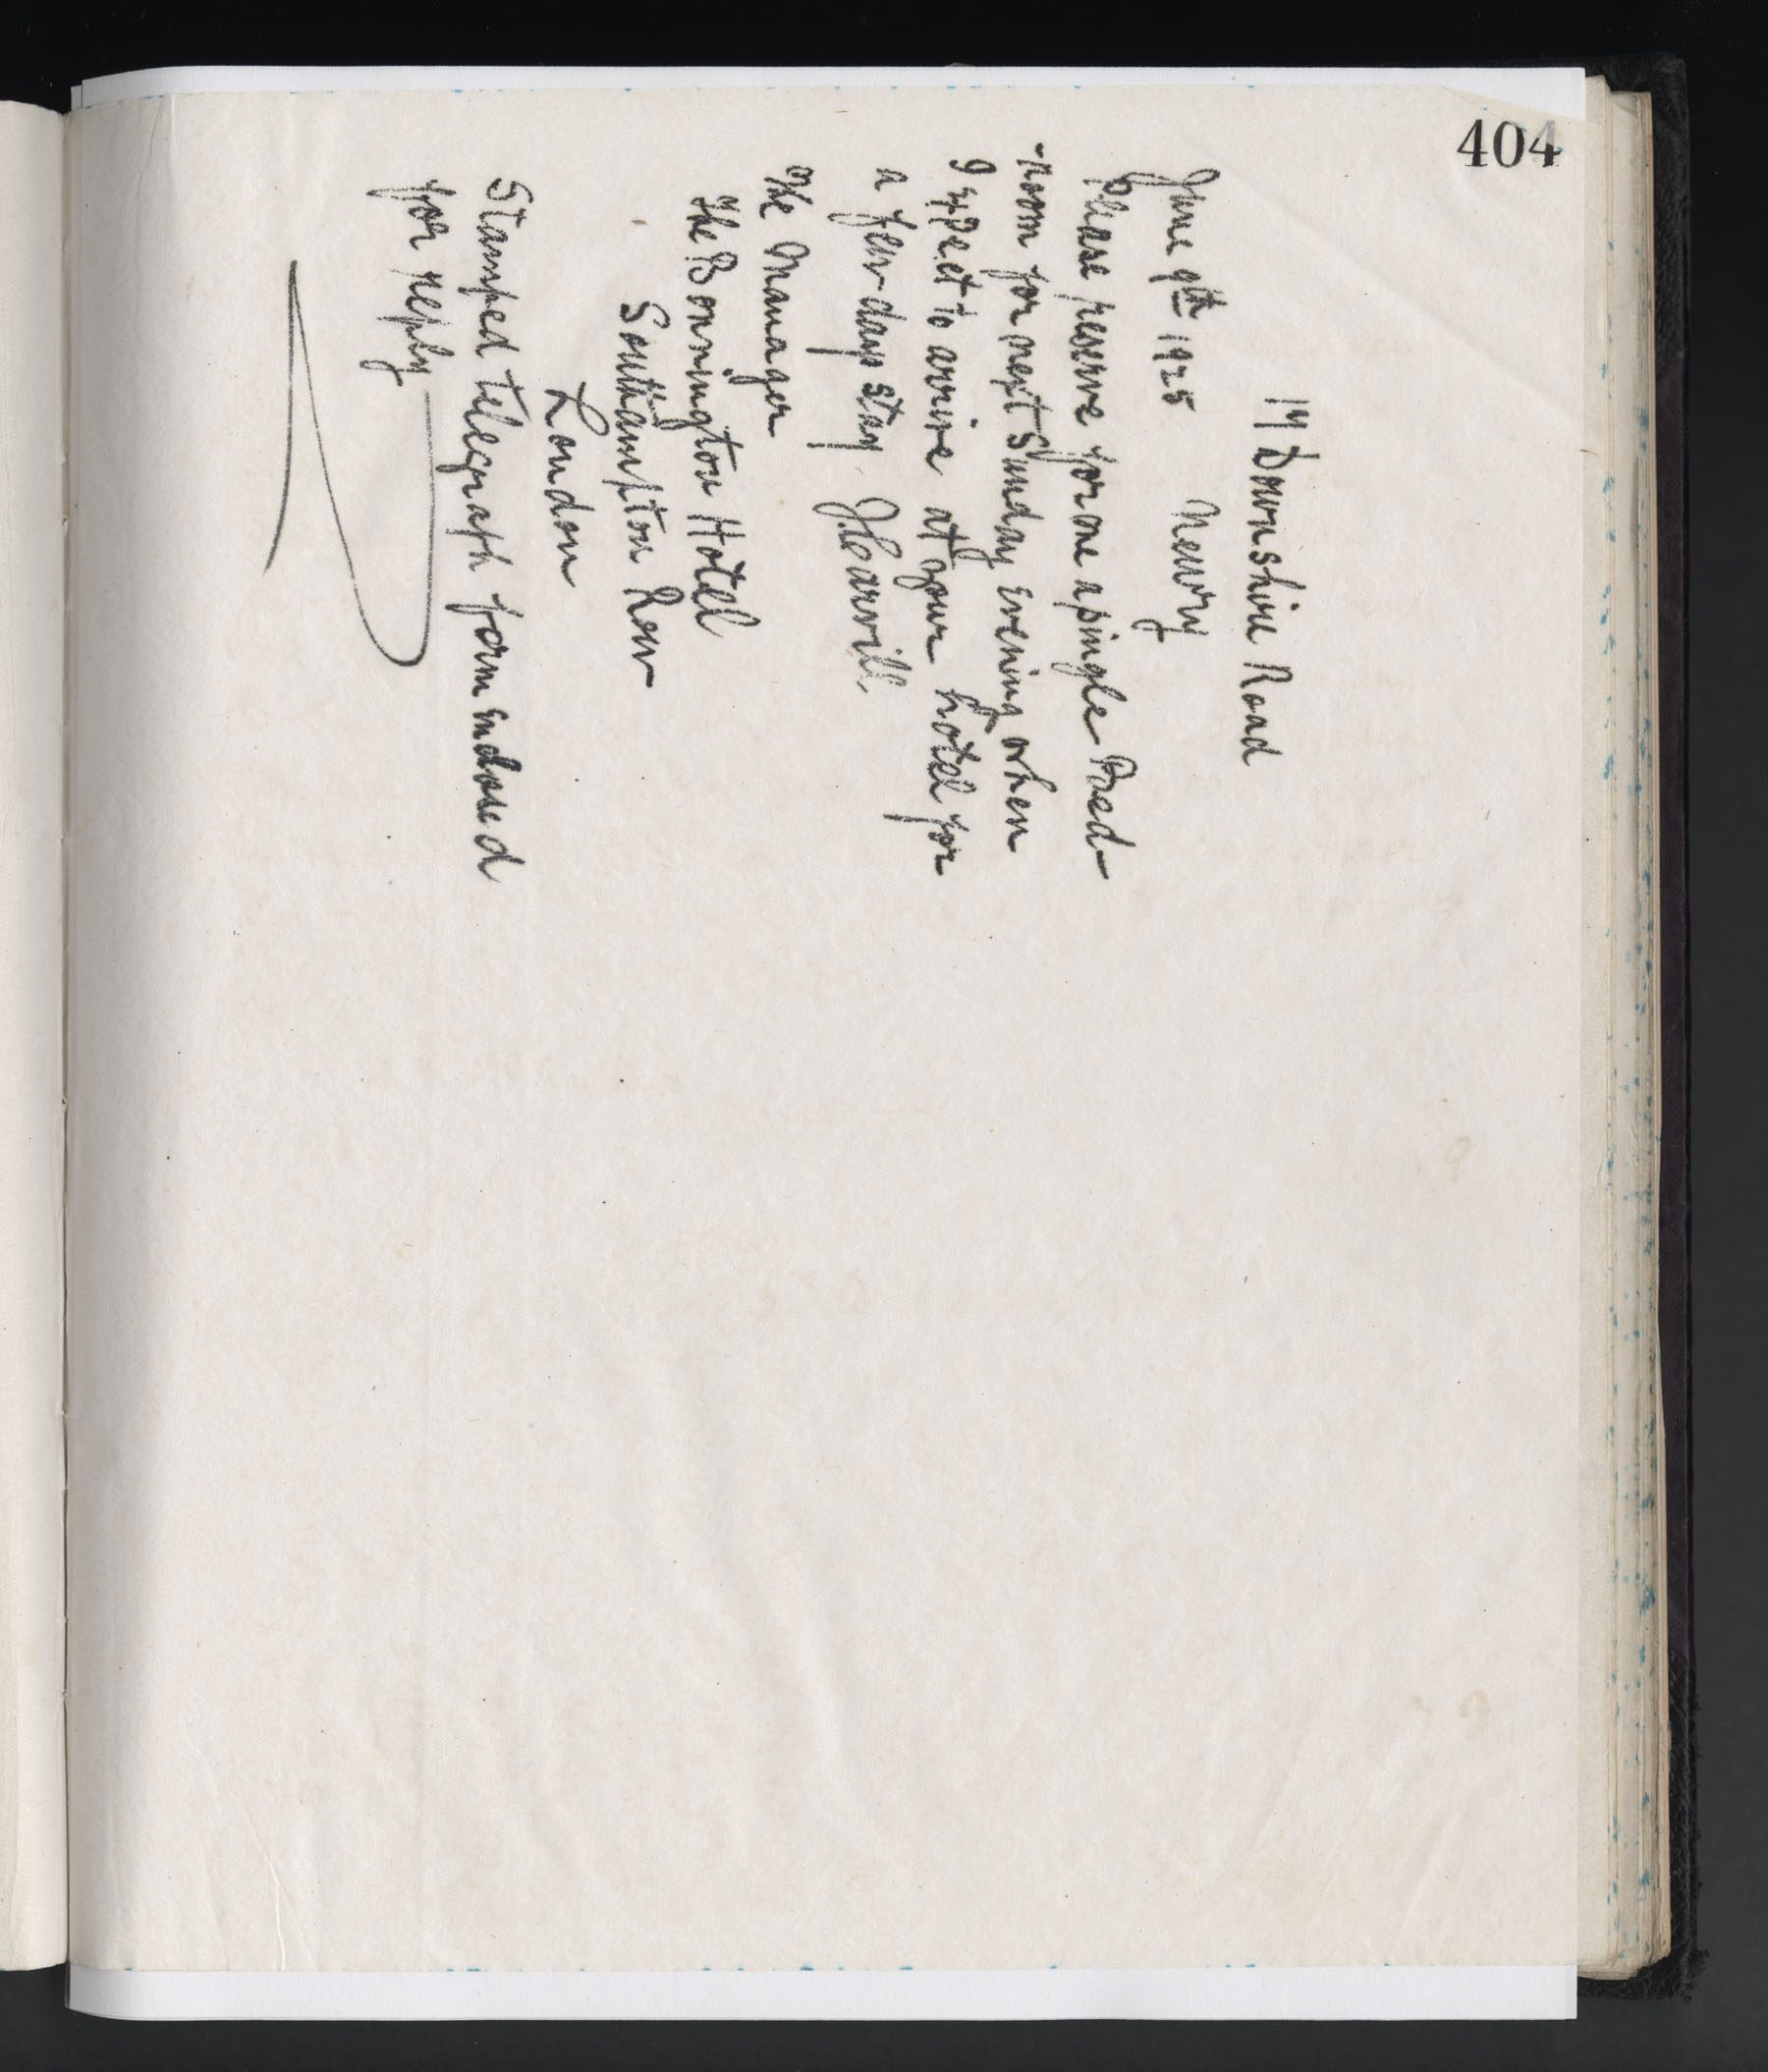 404
14 Downshire Road
June 9th 1925 Newry
Please reserve for me a single Bed-
-room for next Sunday Evening when
I Expect to arrive at your hotel for
a few days stay
The Manager
The Bonnington Hotel
Southampton Row
London
Stamped telegraph form enclosed
for reply